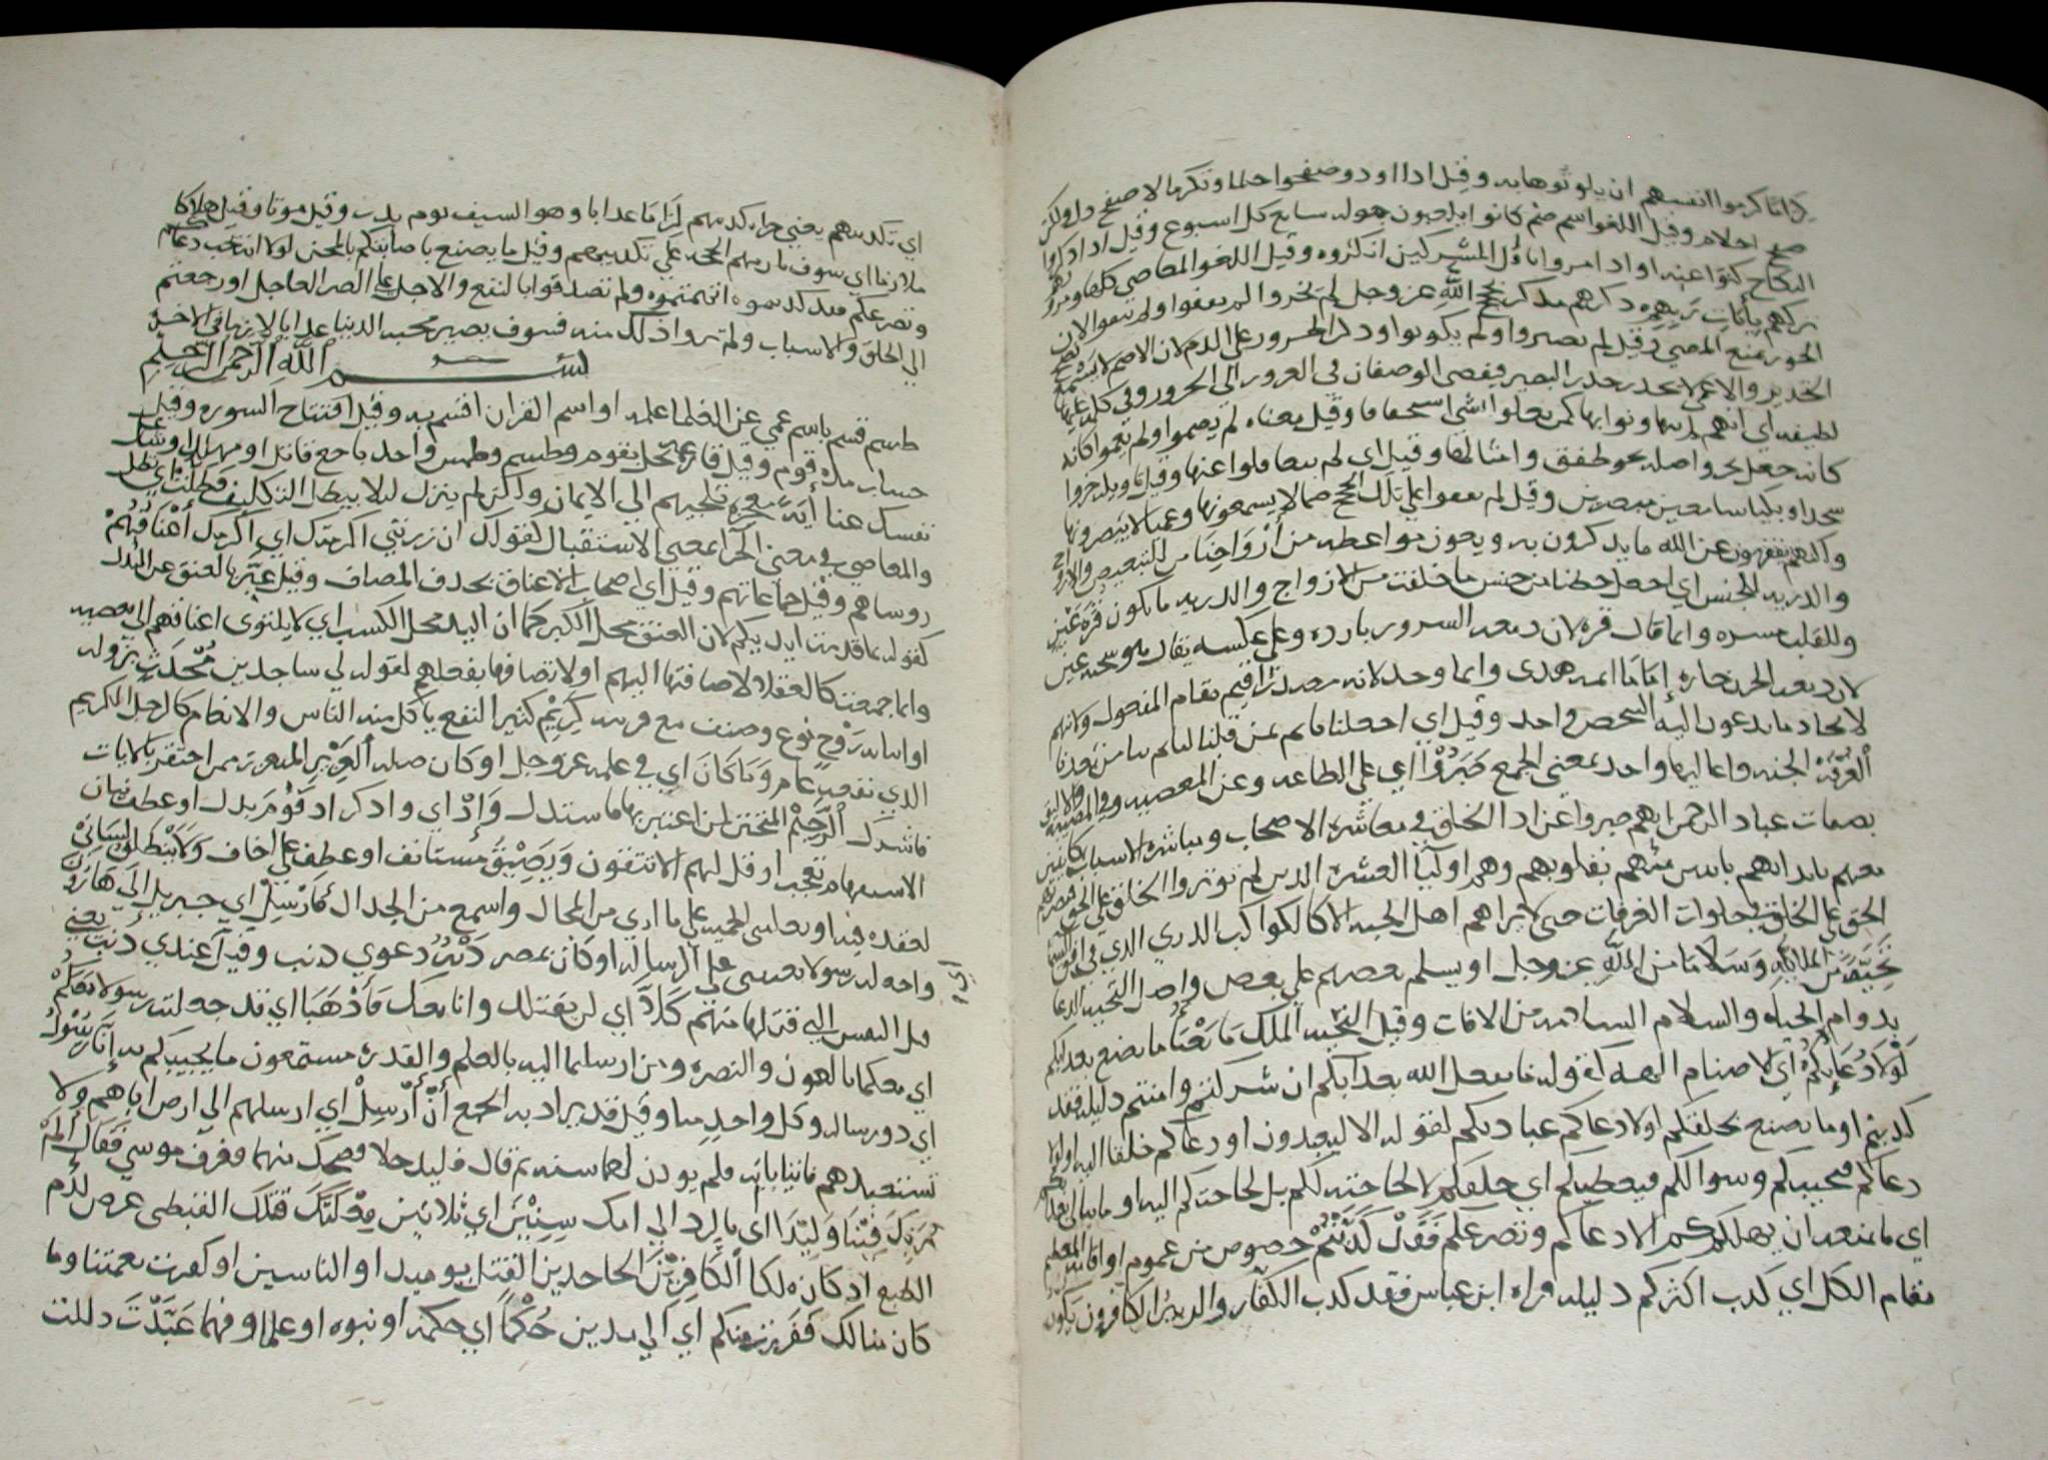 كراما اكرموا انفسهم ان يلوثوها به وقيل اذا اوذوا صفحوا حلما وتكرما لا صفح ذل ولكن
صفح احلام وقيل اللغو اسم صنم كانوا يلعبون حوله سابع كل اسبوع وقيل اذا ذكروا
النكاح كنوا عنه او اذا مروا باول المشركين انكروه وقيل اللغو المعاصي كلها ومرو
تركهم بايات ربهم ذكرهم مذكر بحجج الله عز وجل لم يخروا لم يقعوا ولم
الخرور يمنع المضي وقيل لم يصيروا ولم يكونوا وذكر الخرور على الذم لان الاصم لا يسمع
التحذير والاعمى لا يحذر حذر البصير فيفضى الوصفان في الغرور الى الخرور وفي كلمة عليها
لطيفة اي انهم لم يتهاونوا بها كمن يعلوا شي استحقافا وقيل معناه لم يصموا ولم يعموا كانه
كانه جعل يخر واصله نحو طفق وامثالها وقيل اي لم يتغافلوا عنها وقيل يخروا
سجدا وبكيا سامعين مبصرين وقيل لم يقعوا على تلك الحجج صما لا يسمعونها وعميا لا يبصرونها
وكانهم يفقهون عن الله ما يذكرون به ويعون مواعظه من ازواجنا من للتبعيض والازواج
والذرية للجنس اي اجعل حظنا من جنس ما خلقت من الازواج والذرية ما يكون قرة عين
وللقلب مسرة وانما قال قرة لان دمعة السرور باردة وعلى عكسه يقال هو سخنة عين
لان دمعة الحزن حارة اماما ائمة هدى وانما وحد لانه مصدر اقيم مقام المفعول وانهم
لاتحاد ما يدعون اليه الشخص واحد وقيل اي اجعلنا نأتم بمن قبلنا ليأتم بنا من بعدنا
الغرفة الجنة واعاليها واحد بمعنى الجمع صبروا اي على الطاعة وعن المعصية وفي المصيبة
بصفات عباد الرحمن انهم صبروا عن اذا الخلق في معاشرة الاصحاب ومباشرة الاسباب كاينين
معهم بابدانهم باينين منهم بقلوبهم وهم اوليا العشرة الذين لم يوثروا الخلق على الحق
الحق على الخلق في خلوات الغرفات حتى لا يراهم اهل الجنة الا كالكواكب الدري الذي في افق السما
تحية من الملائكة وسلاما من الله عز وجل او يسلم بعضهم على بعض واصل التحية الدعا
بدوام الحياة والسلام السلامة من الافات وقيل التحية الملك ما يعبأ ما يصنع بعذابكم
لولا دعاؤكم اي الاصنام الهة كقوله ما يفعل الله بعذابكم ان شكرتم وامنتم دليله فقد
كذبتم او ما يصنع بخلقكم لولا دعاكم عبادتكم لقوله الا ليعبدون او دعاكم خلقا اليه او لولا
دعاكم فيجيبكم وسوالكم فيعطيكم اي خلقكم لا لحاجته لكم بل لحاجتكم اليه او ما يبالي بعذابكم
اي ما يمنعه ان يهلككم الا دعاكم وتضرعكم فقد كذبتم خصوص من عموم او اقام المعظم
مقام الكل اي كذب اكثركم دليله قراة ابن عباس فقد كذب الكفار والزبير الكافرون يكون
اي تكذيبهم يعني جزاء تكذيبهم لزاما عذابا وهو السيف يوم بدر وقيل موتا وقيل هلاكا
ملازما اي سوف يلزمهم الحجة على تكذيبهم وقيل ما يصنع باصابتكم بالمحن لولا انه يحب دعاكم
وتضرعكم فقد كذبتموه انهمتموه ولم تصدقوا بالنفع والاجل على الضر العاجل اورجعتم
الى الخلق والاسباب ولم تروا ذلك منه فسوف يصير محبه الدنيا عذابا لازما في الاخرة
بسم الله الرحمن الرحيم
طسم قسم باسم عمي عن العلما علمه او اسم القران اقسم به وقيل افتتاح السورة وقيل
حساب مدة قوم وقيل قارعة تحل بقوم وطسم وطمس واحد باخع قاتل او مهلك او شاغل
نفسك عنا اية معجزة تلجيهم الى الايمان ولكن لم ينزل ليلا يبطل التكليف فظلت اي تظل
والماضي في معنى الجزا بمعنى الاستقبال كقولك ان زرتني اكرمتك اي اكرمك اعناقهم
روساهم وقيل جماعاتهم وقيل اي اصحاب الاعناق بحذف المضاف وقيل عبر بالعنق عن البدل
كقوله بما قدمت ايديكم لان العنق محل الكبر كما ان اليد محل الكسب اي لا يلتوى اعناقهم الى معصية
وانما جمعت كالعقلا لاضافتها اليهم او لاتصافها بفعلهم لقوله لي ساجدين محدث نزوله
او اتيانه زوج نوع وصنف مع قرينه كريم كثير النفع ياكل منه الناس والانعام كالرجل الكريم
الذي نفعه عام وما كان اي في علمه عز وجل او كان صلة العزيز المنتقم ممن احتقر بالايات
فاشرك الرحيم المنجي لمن اعتبر بها فاستدل واذ اي واذكر اذ قوم بدل او عطف بيان
الاستفهام تعجب او قل لهم الا تتقون ويضيق مستانف او عطف على اخاف ولا ينطلق لساني
لعقدة فيه او يغلبني الحمية على ما ارى من المحال واسمع من الجدال فارسل اي جبريل الى هارون
واجعله رسولا يعينني على الرسالة او كان بمصر ذنب دعوى ذنب وقيل عندي ذنب يعني
قتل النفس التي قتلها منهم كلا اي لن يقتلك وانا معك فاذهبا اي قد جعلته رسولا معكم
اي معكما بالعون والنصرة ومن ارسلتما اليه بالعلم والقدرة مستمعون ما يجيبكم به انا رسول
اي ذو رسالة وكل واحد منا وقيل قد يراد به الجمع ان ارسل اي ارسلهم الى ارض اباهم ولا
تستعبدهم فاتيا بابه فلم يوذن لهما سنة ثم قال فليدخلا فضحك منهما فعرف موسى فقال الم
نربك فينا وليدا اي ما لم يرد الى امك سنين اي ثلاثين فعلتك قتلك القبطي عرض لذم
الطبع اذ كان ملكا الكافرين الجاحدين القتل يوميذ او الناسين او كفرت نعمتنا وما
كان منا لك ففررت منكم اي الى مدين حكما اي حكمة او نبوة او علما وفهما عبدت ذللت